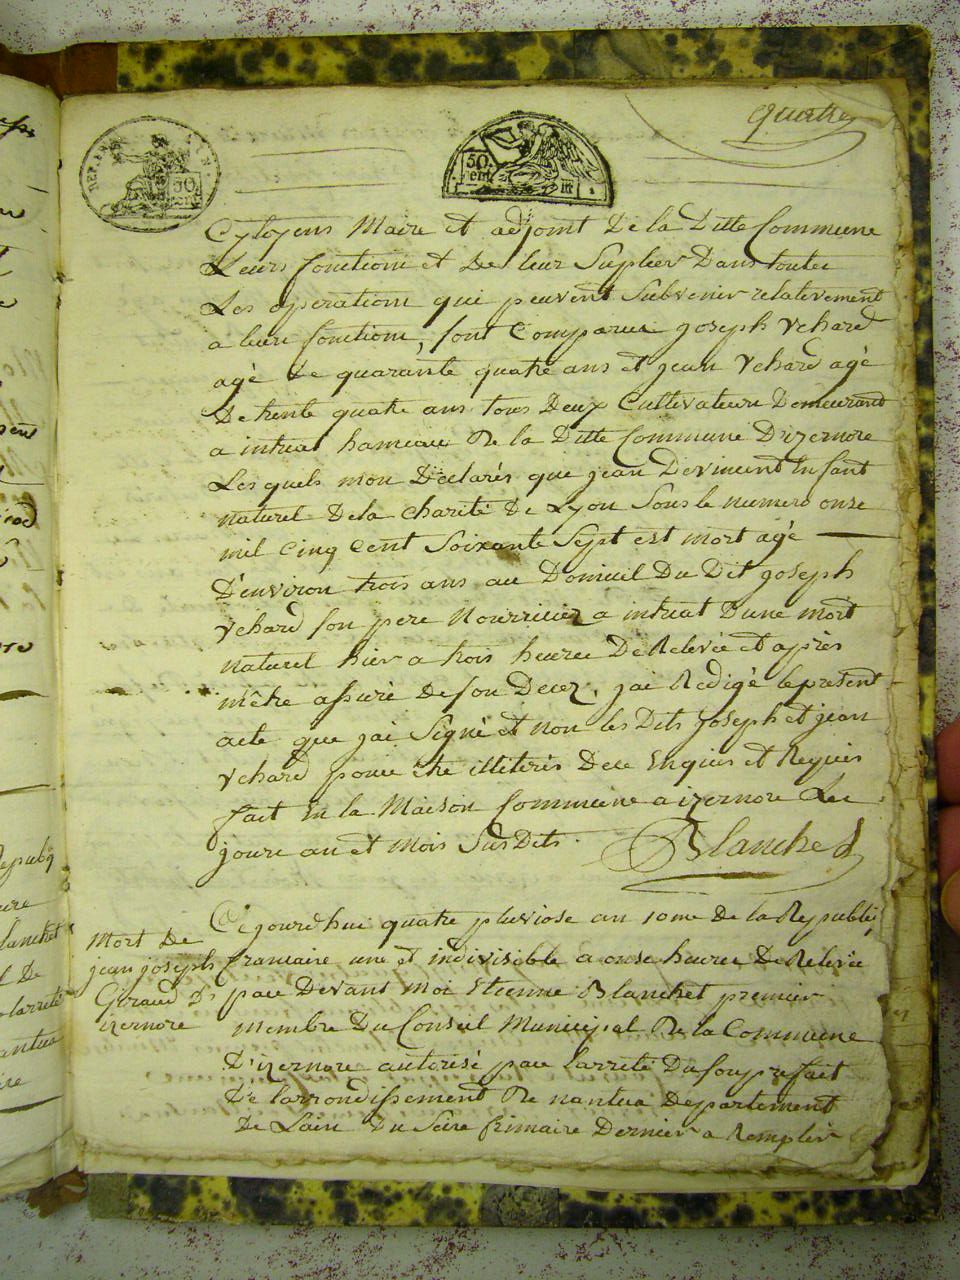 quatre
REP. FRA. AIN.
50 cent
50 cent
Cytoyens Maire et adjoint De la Ditte Commune
Leurs fonctions et De leur Suplier Dans toutes
Les operations qui peuvent Subvenir relativement
a leurs fonctions, sont Comparus joseph Vehard
agé de quarante quatre ans et jean Vehard agé
De trente quatre ans tous Deux Cultivateurs Demeurant
a intriat hameau De la Ditte Commune D'izernore
Lesquels mon Déclarés que jean Devincent Enfant
naturel De la charité De Lyon Sous le numero onse
mil Cinq Cent Soixante Sept est mort agé
D'environ trois ans au Domicil Du Dit joseph
Vehard son pere Nourricier a intriat D'une mort
naturel hier a trois heures De Relevée et après
m'être assuré De son Decez, jai Redigé le present
acte que jai Signé et non les Dits joseph et jean
Vehard pour être illiterés De ce Enquis et Requis
fait En la Maison Commune a izernore Les
jours an et Mois Sus Dits.
Blanchet
Mort De
jean joseph
Giraud D'
izernore
Cejourd'hui quatre pluviose an 10me de la Republi
francaise une et indivisible a onse heures De Relevée
par Devant Moi Etienne Blanchet premier
membre Du Conseil Municipal De la Commune
D'izernore autorisé par l'arrêté Du souprefait
De l'arrondissement De nantua Departement
De Lain Du Seize frimaire Dernier a Remplir